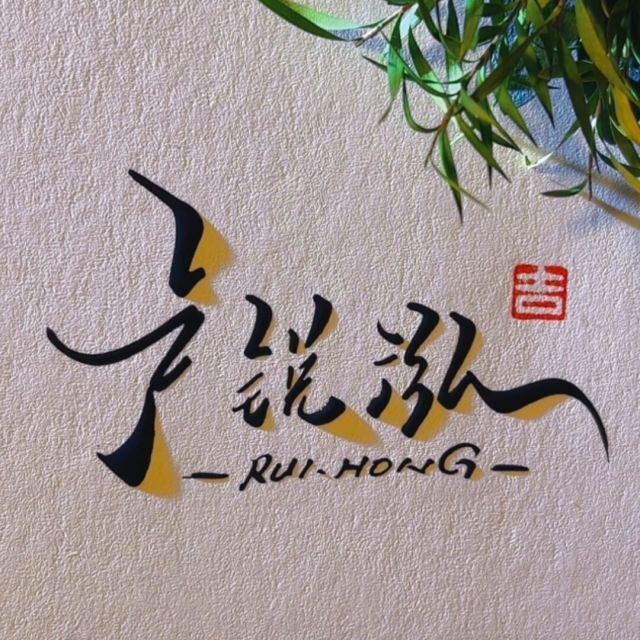 锐泓
- RUI-HONG -
吉